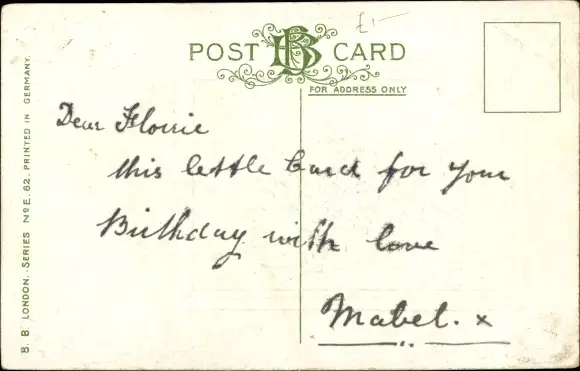 £1-
POST BB CARD
FOR ADDRESS ONLY
Dear Florrie
this little Card for your
Birthday with love
Mabel. x
B. B. LONDON. SERIES NO E. 62. PRINTED IN GERMANY.